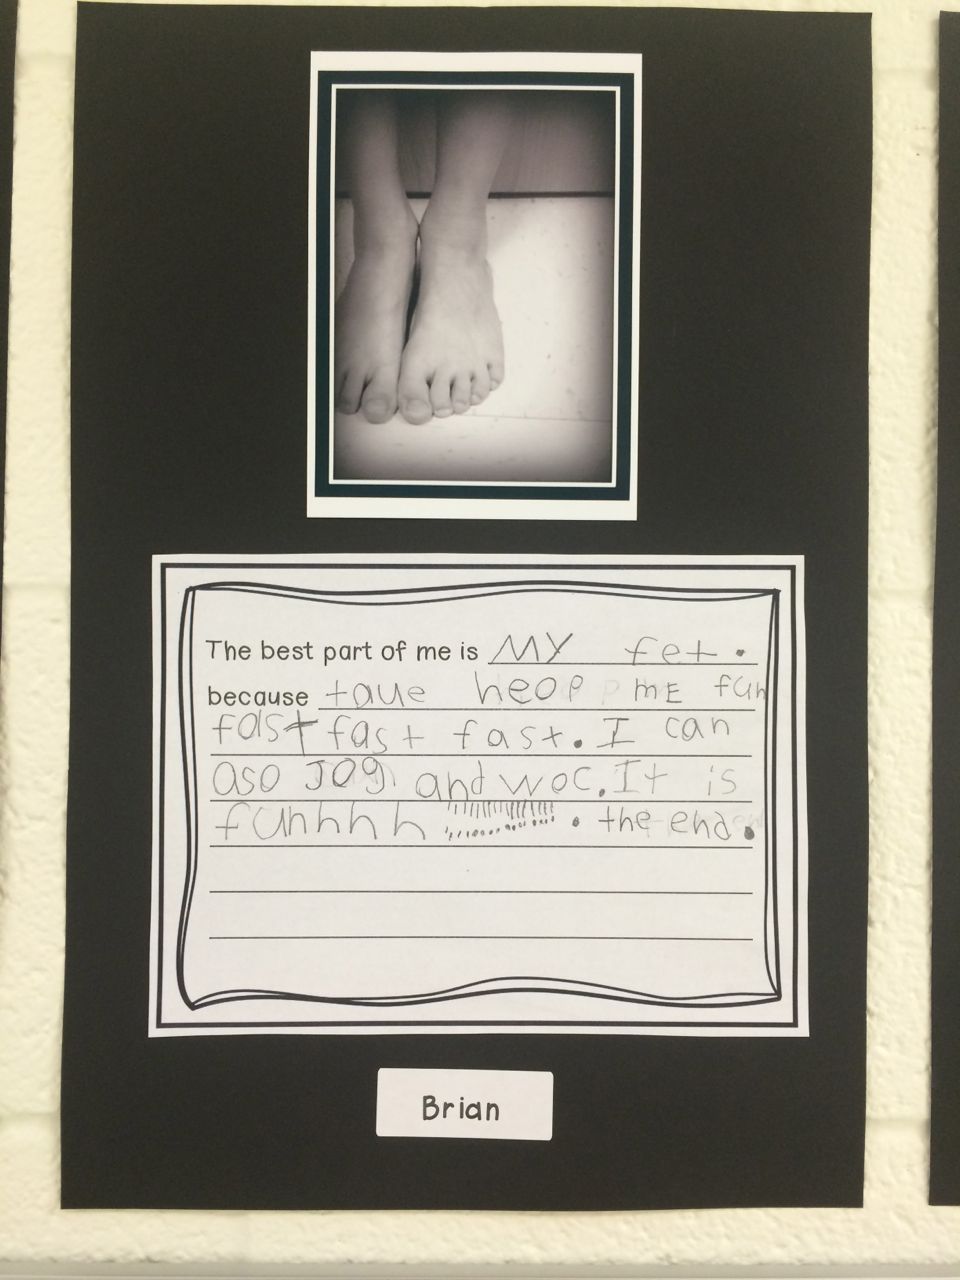 The best part of me is MY fet.
because taue heop mE fun
fast fast fast. I can
aso Jog and woc. It is
funhhh !!!!!!!!!!!!!!!!!! . the end.
Brian